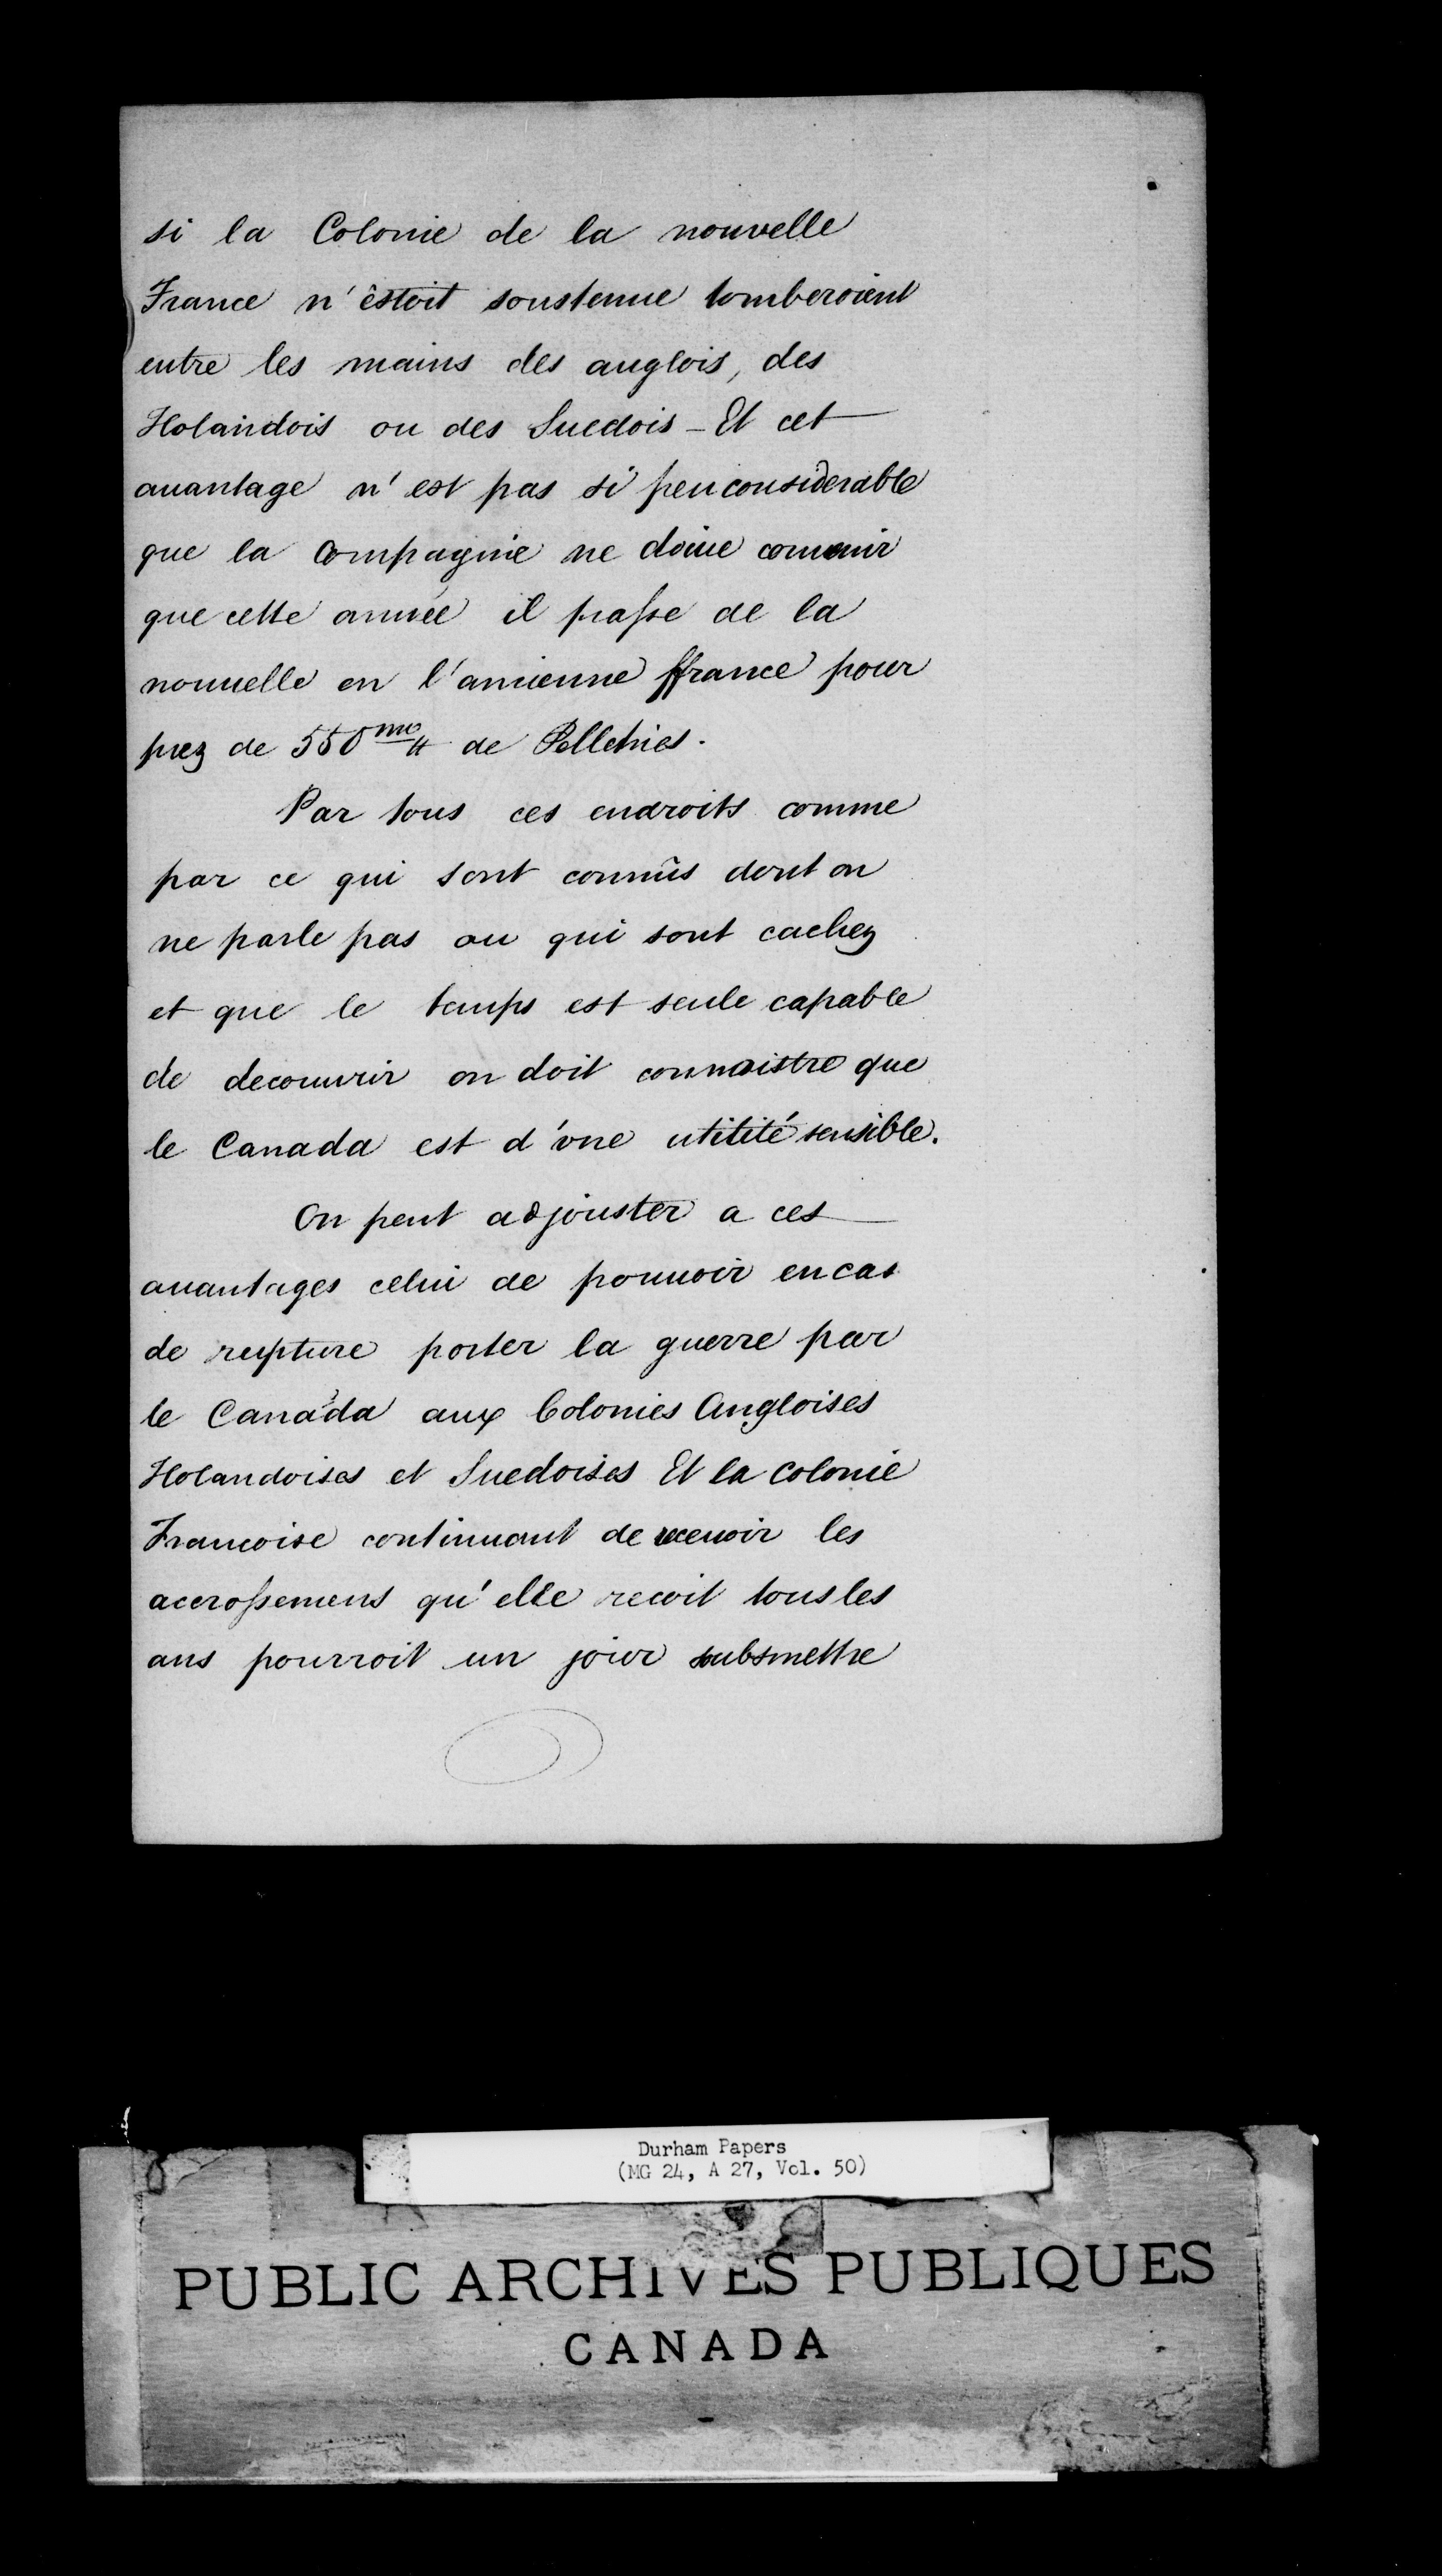 si la Colonie de la nouvelle
France n'êstoit soustenue tomberoient
entre les mains des anglois, des
Holandois ou des Suedois - Et cet
auantage n'est pas si peu considerable
que la Compagnie ne doiue conuenir
que cette année il passe de la
nouuelle en l'ancienne ffrance pour
prez de 550 me ₶ de Pelletries.
Par tous ces endroits comme
par ce qui sont connûs dont on
ne parle pas ou qui sont cachez
et que le temps est seule capable
de decouvrir on doit connaistre que
le Canada est d'vne utilité sensible.
On peut adjouster a ces
auantages celui de pouuoir en cas
de rupture porter la guerre par
le Canada aux Colonies Angloises
Holandoises et Suedoises Et la Colonie
Francoise continuant de receuoir les
accrossemens qu'elle recoit tous les
ans pourroit un jour subsmettre
Durham Papers
(MG 24, A 27, Vol. 50)
PUBLIC ARCHIVES PUBLIQUES
CANADA